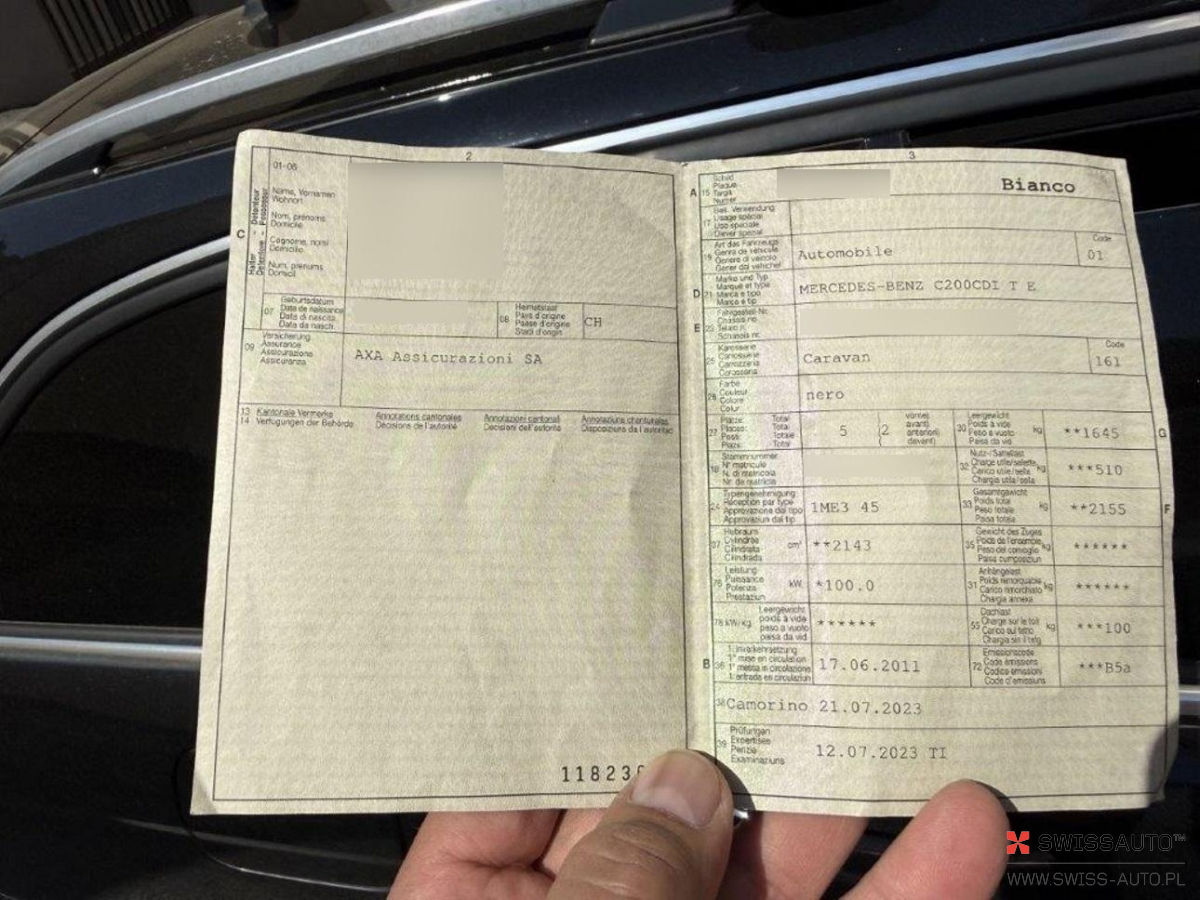 2
01-06
C
Halter - Détenteur
Detentore - Possessur
Name, Vornamen
Wohnort
Nom, prénoms
Domicile
Cognome, nomi
Domicilio
Num, prenums
Domicil
07
Geburtsdatum
Date de naissance
Data di nascita
Data da nasch.
08
Heimatstaat
Pays d'origine
Paese d'origine
Stadi d'origin
CH
09
Versicherung
Assurance
Assicurazione
Assicuranza
AXA Assicurazioni SA
13 Kantonale Vermerke
14 Verfügungen der Behörde
Annotations cantonales
Décisions de l'autorité
Annotazioni cantonali
Decisioni dell'autorità
Annotaziuns chantunalas
Disposiziuns da l'autoritad
11823
3
A 15
Schild
Plaque
Targa
Numer
Bianco
17
Bes. Verwendung
Usage spécial
Uso speciale
Diever spezial
19
Art des Fahrzeugs
Genre de véhicule
Genere di veicolo
Gener dal vehichel
Automobile
Code
01
D 21
Marke und Typ
Marque et type
Marca e tipo
Marca e tip
MERCEDES-BENZ C200CDI T E
E 23
Fahrgestell-Nr.
Châssis no
Telaio n.
Schassis nr.
25
Karosserie
Carrosserie
Carrozzeria
Carossaria
Caravan
Code
161
26
Farbe
Couleur
Colore
Colur
nero
27
Plätze: Total
Places: Total
Posti: Totale
Plazs: Total
5
2
vorne)
avant)
anteriori)
davant)
30
Leergewicht
Poids à vide
Peso a vuoto
Paisa da vid
kg
**1645
G
18
Stammnummer
N° matricule
N. di matricola
Nr. da matricla
32
Nutz-/Sattellast
Charge utile/sellette
Carico utile/sella
Chargia utila/sella
kg
***510
24
Typengenehmigung
Réception par type
Approvazione del tipo
Approvaziun dal tip
1ME3 45
33
Gesamtgewicht
Poids total
Peso totale
Paisa totala
kg
**2155
F
37
Hubraum
Cylindrée
Cilindrata
Cilindrada
cm³
**2143
35
Gewicht des Zuges
Poids de l'ensemble
Peso del convoglio
Paisa cumposiziun
kg
******
76
Leistung
Puissance
Potenza
Prestaziun
kW
*100.0
31
Anhängelast
Poids remorquable
Carico rimorchiato
Chargia annexa
kg
******
78 kW/kg
Leergewicht
poids à vide
peso a vuoto
paisa da vid
******
55
Dachlast
Charge sur le toit
Carico sul tetto
Chargia sin il tetg
kg
***100
B 36
1. Inverkehrsetzung
1re mise en circulation
1a messa in circolazione
1. entrada en circulaziun
17.06.2011
72
Emissionscode
Code émissions
Codice emissioni
Code d'emissiuns
***B5a
38
Camorino 21.07.2023
39
Prüfungen
Expertises
Perizie
Examinaziuns
12.07.2023 TI
SWISSAUTO™
WWW.SWISS-AUTO.PL